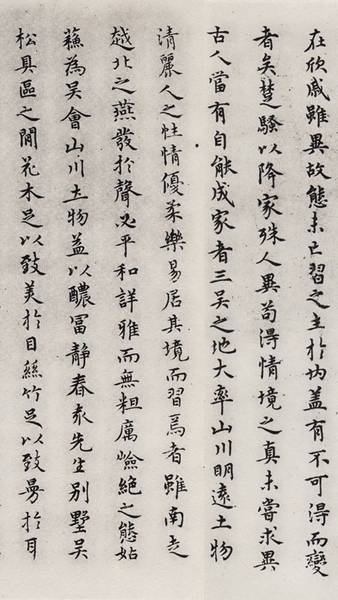 在欣戚雖異故態未已習之主於内蓋有不可得而變
者矣楚騷以降家殊人異苟得情境之真未嘗求異
古人當有自能成家者三吴之地大率山川明遠土物
清麗人之性情優柔樂易居其境而習焉者雖南走
越北之燕發於聲必平和詳雅而無粗厲噞絶之態姑
蘓為吴會山川土物益以醲冨靜春袁先生别墅吴
松具區之閒花木足以致美於目絲竹足以致曼於耳